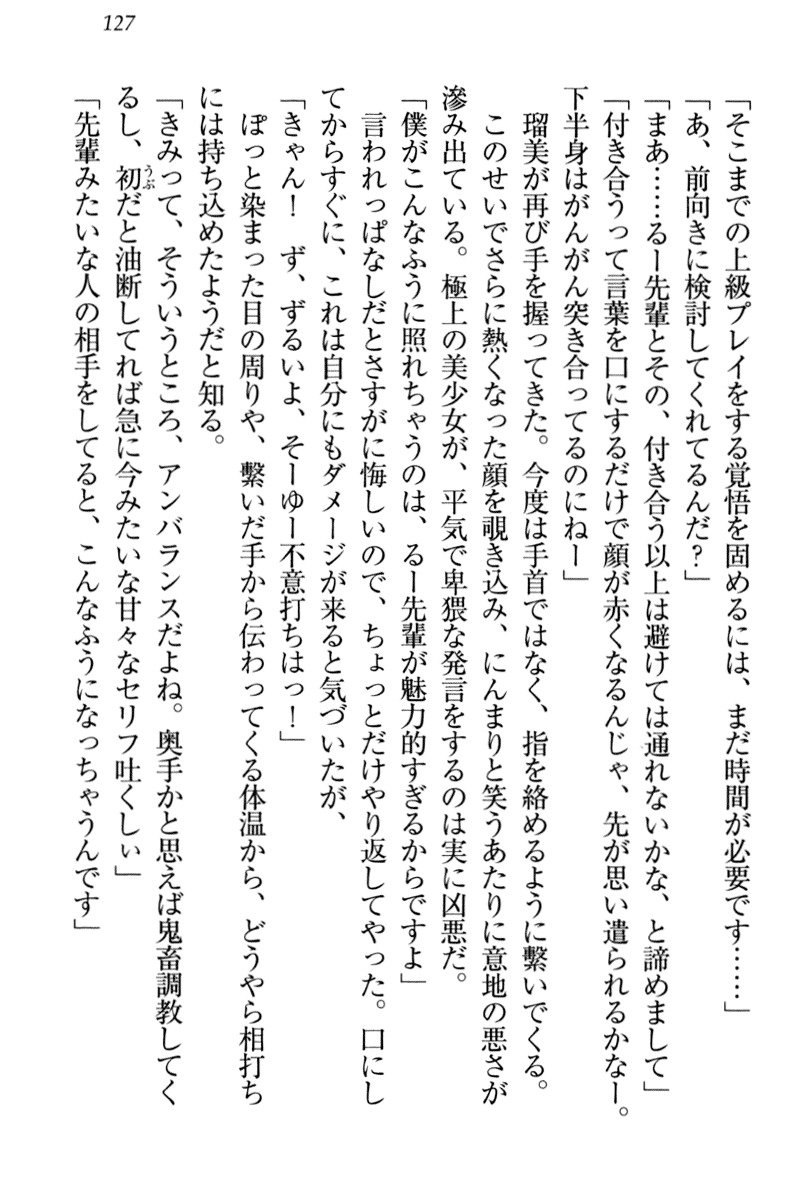 127
「そこまでの上級プレイをする覚悟を固めるには、まだ時間が必要です……」
「あ、前向きに検討してくれてるんだ？」
「まあ……るー先輩とその、付き合う以上は避けては通れないかな、と諦めまして」
「付き合うって言葉を口にするだけで顔が赤くなるんじゃ、先が思い遣られるかなー。
下半身はがんがん突き合ってるのにねー」
瑠美が再び手を握ってきた。今度は手首ではなく、指を絡めるように繋いでくる。
このせいでさらに熱くなった顔を覗き込み、にんまりと笑うあたりに意地の悪さが
滲み出ている。極上の美少女が、平気で卑猥な発言をするのは実に凶悪だ。
「僕がこんなふうに照れちゃうのは、るー先輩が魅力的すぎるからですよ」
言われっぱなしだとさすがに悔しいので、ちょっとだけやり返してやった。口にし
てからすぐに、これは自分にもダメージが来ると気づいたが、
「きゃん！　ず、ずるいよ、そーゆー不意打ちはっ！」
ぽっと染まった目の周りや、繋いだ手から伝わってくる体温から、どうやら相打ち
には持ち込めたようだと知る。
「きみって、そういうところ、アンバランスだよね。奥手かと思えば鬼畜調教してく
るし、初うぶだと油断してれば急に今みたいな甘々なセリフ吐くしぃ」
「先輩みたいな人の相手をしてると、こんなふうになっちゃうんです」